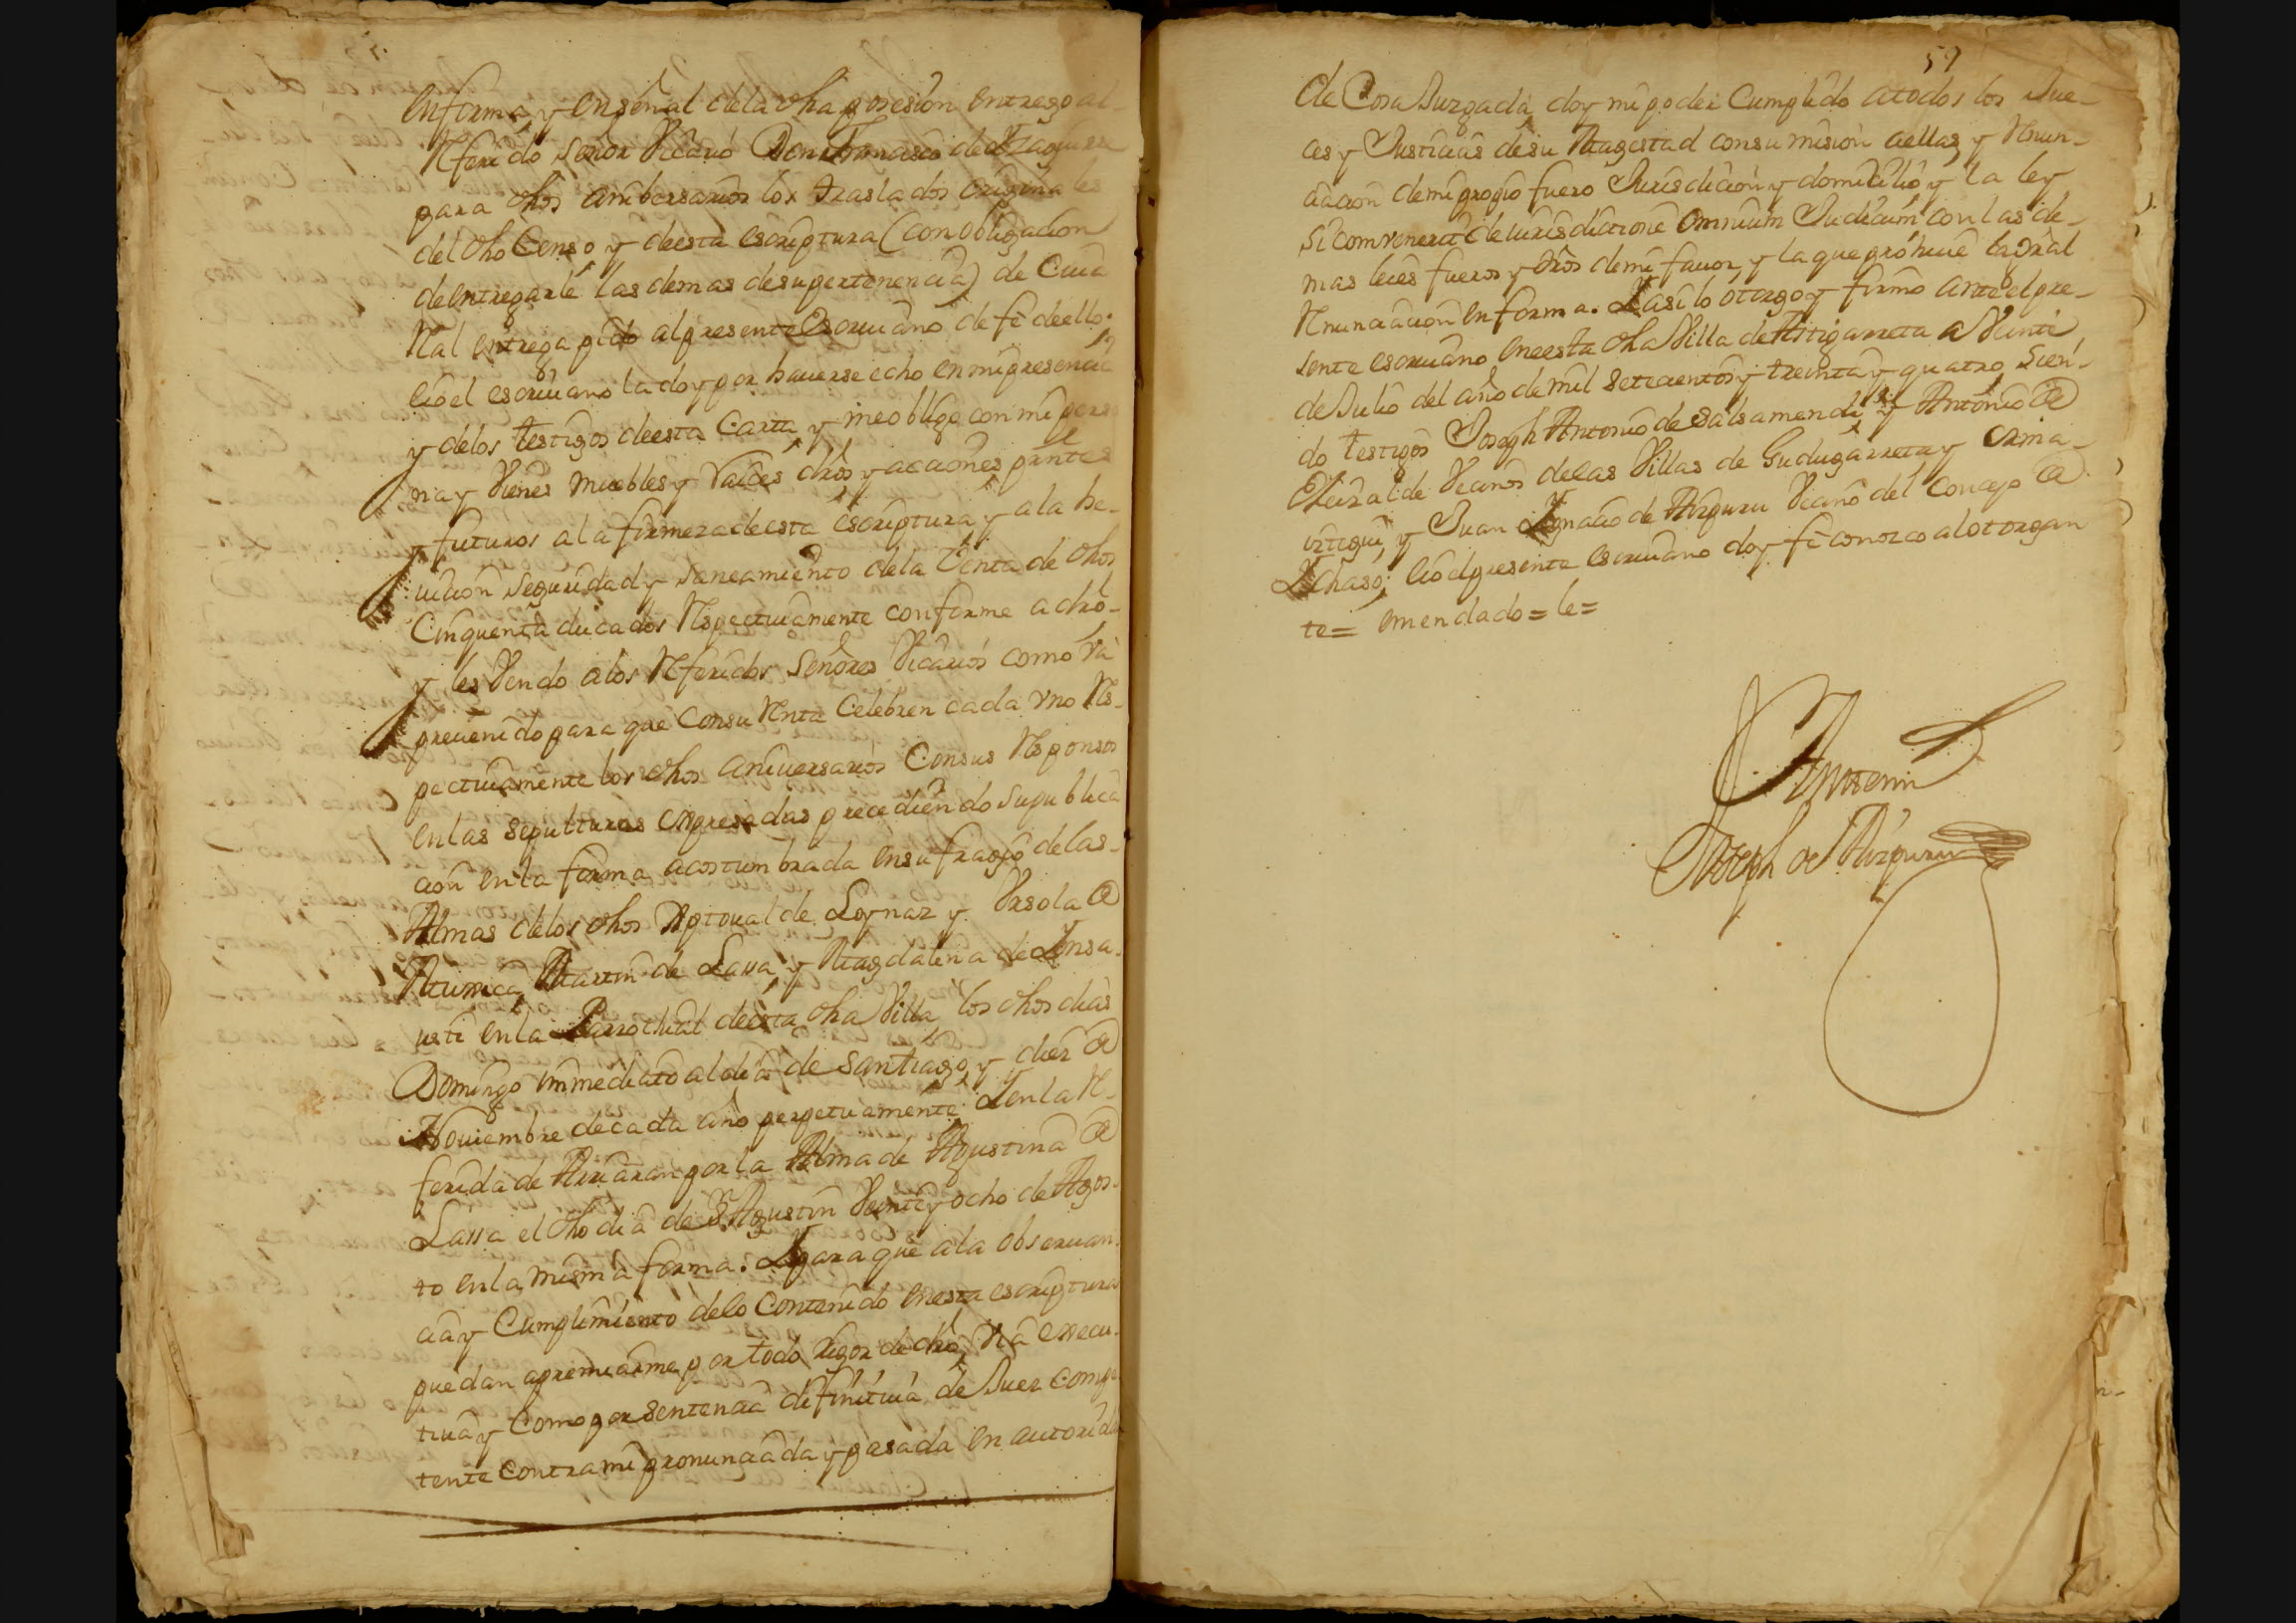 en forma, y en señal de la dha posesion entrego al
referido Señor Vicario Don Francisco de
para dhos anibersarios los traslados originales
del dho Censo, y de esta escriptura (con obligacion
de entregarle las demas de su pertenencia) de Cuia
Real entrega pido al presente escriuano de fe de ello.
el escriuano la doy por hauerse echo en mi presencia
y de los testigos de esta Carta, y me obligo con mi perso
na y Vienes muebles y raices, dros, y acciones, prntes
y futuros a la firmeza de esta escriptura, y a la he-
uicion seguridad y saneamiento de la Venta de dhos
Cinquenta ducados respectiuamente conforme a dro-
y les Vendo a los referidos Señores Vicarios como va
preuenido para que Con su renta Celebren cada vno res-
pectiuamente los dhos aniuersarios Con sus responsos
en las sepulturas expresadas precediendo su publica
cion en la forma acostumbrada en sufragio de las-
Almas de los dhos Xptoual de Loynaz y Vrsola de
Murnica, Martin de Lassa, y Magdalena de Insa-
usti en la Parrochial de esta dha Villa, los dhos dias
Domingo immediato al dia de Santiago, y diez de
Nouiembre de cada año perpetuamente. Y en la re-
ferida de Arriaran por la Alma de Agustina de
Lassa el dho dia de S. Agustin Veinte y ocho de Agos-
to en la misma forma. Y para que a la obseruan-
cia y Cumplimiento de lo Contenido en esta escriptura
puedan apremiarme por todo rigor de dro, via execu-
tiua y Como por sentencia difinitiua de Juez Compe
tente contra mi pronunciada y pasada en autorida
59
de Cosa Juzgada, doy mi poder Cumplido a todos los Jue-
ces y Justicias de su Magestad con sumision a ellas, y renun-
ciacion de mi propio fuero Jurisdicion y domicilio y la ley
si comvenerit de iurisdictione omnium Judicum con las de-
mas leies fueros y dros de mi fauor, y la que prohiue la gral
renunciacion en forma. Y asi lo otorgo y firmo ante el pre-
sente escriuano en esta dha Villa de Astigarreta a Veinte
de Julio del año de mil setecientos y treinta y quatro, Sien-
do testigos Joseph Antonio de Salsamendi, y Antonio de
Vecinos de las Villas de Gudugarreta y Orma-
iztegui, y Juan Ignacio de Aizpuru Vecino del Concejo de
Ychaso; el presente escriuano doy fe conozco al otorgan
te= emendado=le=
Antemi
Joseph de Aizpuru